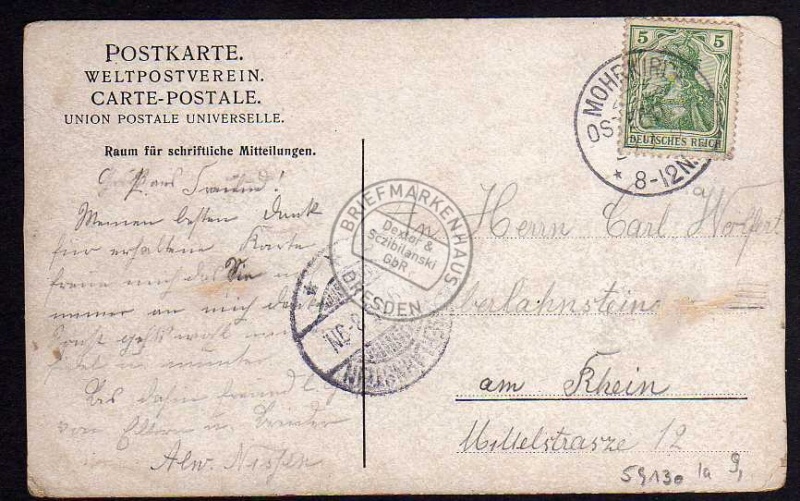 POSTKARTE.
WELTPOSTVEREIN.
CARTE-POSTALE.
UNION POSTALE UNIVERSELLE.
Raum für schriftliche Mitteilungen.
Freund!
Meinen besten Dank
für erhaltene Karte
freue mich das Sie
immer an mich
geht's wohl
u. munter
Bis dahin
von Eltern u. Bruder
Alw. Nissen
5 5
DEUTSCHES REICH
MOHRKIRCH
OST
* 8-12N.
BRIEFMARKENHAUS
Dextor &
Sczibilanski
GbR
DRESDEN
An
Herrn Carl Wolfert
Oberlahnstein
am Rhein
Mittelstrasze 12
59130 1a 9,